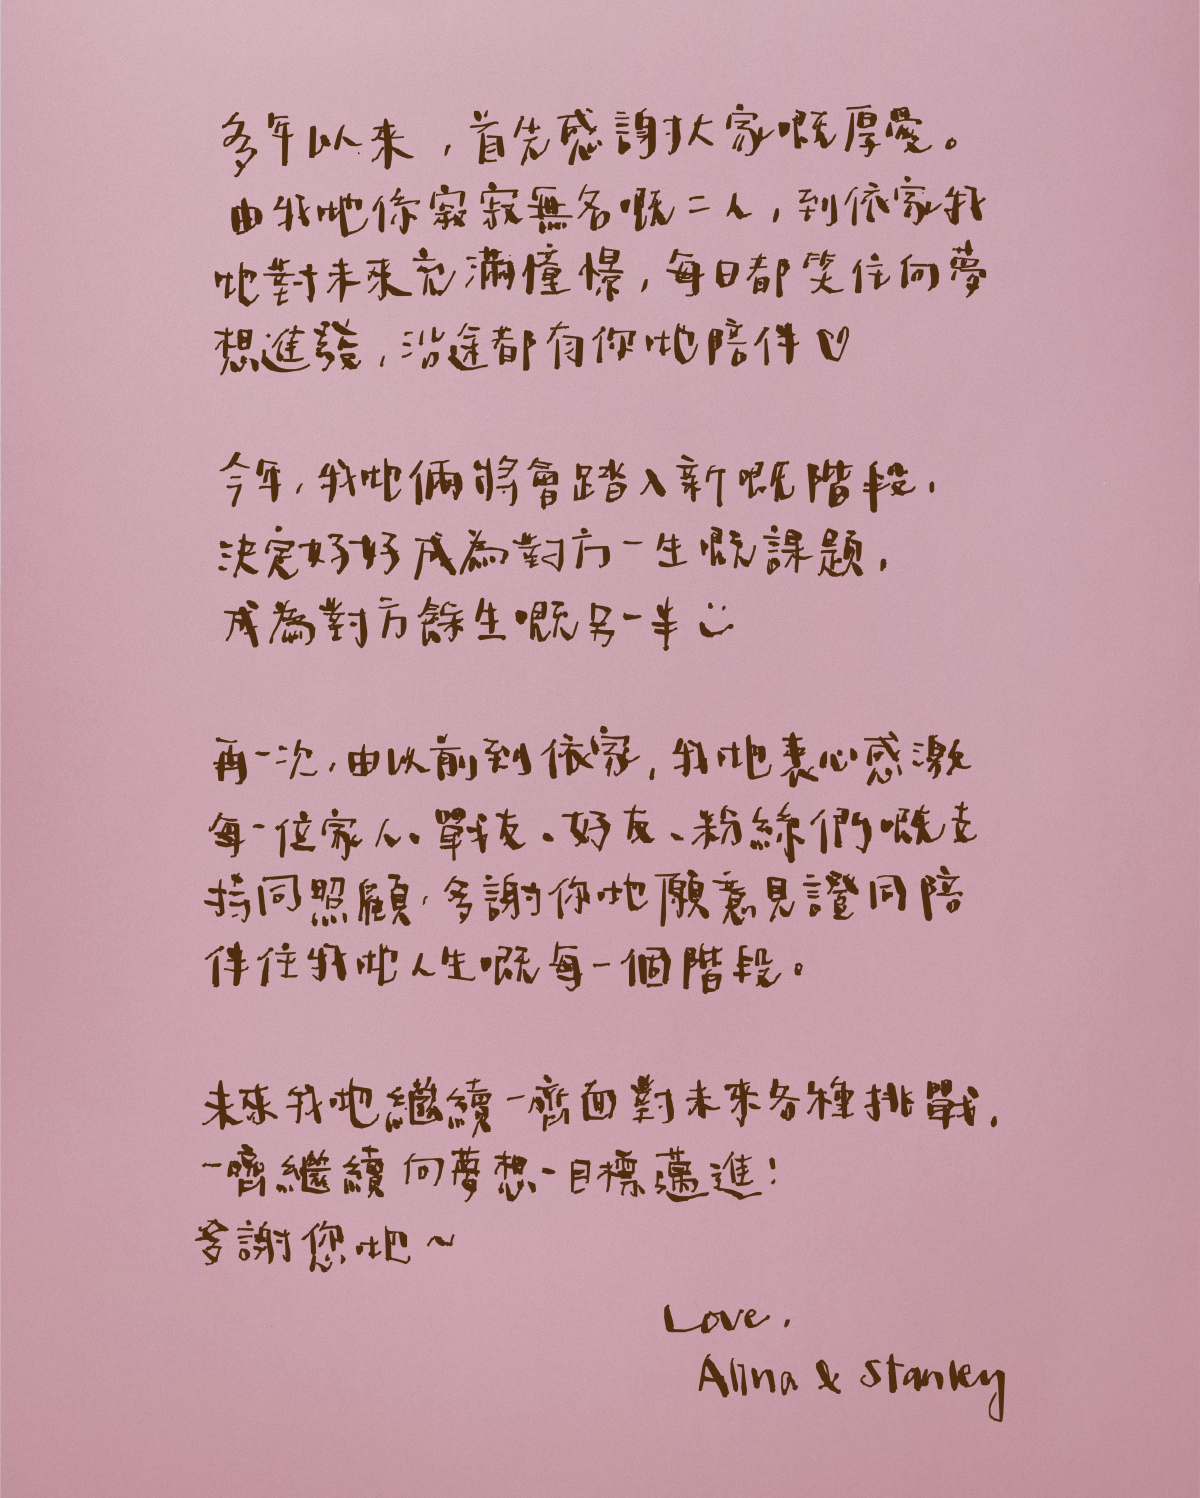 多年以來，首先感謝大家嘅厚愛。
由我哋係寂寂無名嘅二人，到依家我
哋對未來充滿憧憬，每日都笑住向夢
想進發，沿途都有你哋陪伴♡
今年，我哋倆將會踏入新嘅階段，
決定好好成為對方一生嘅課題，
成為對方餘生嘅另一半 :)
再一次，由以前到依家，我哋衷心感激
每一位家人、戰友、好友、粉絲們嘅支
持同照顧，多謝你哋願意見證同陪
伴住我哋人生嘅每一個階段。
未來我哋繼續一齊面對未來各種挑戰，
一齊繼續向夢想、目標邁進！
多謝您哋～
Love,
Alina & Stanley